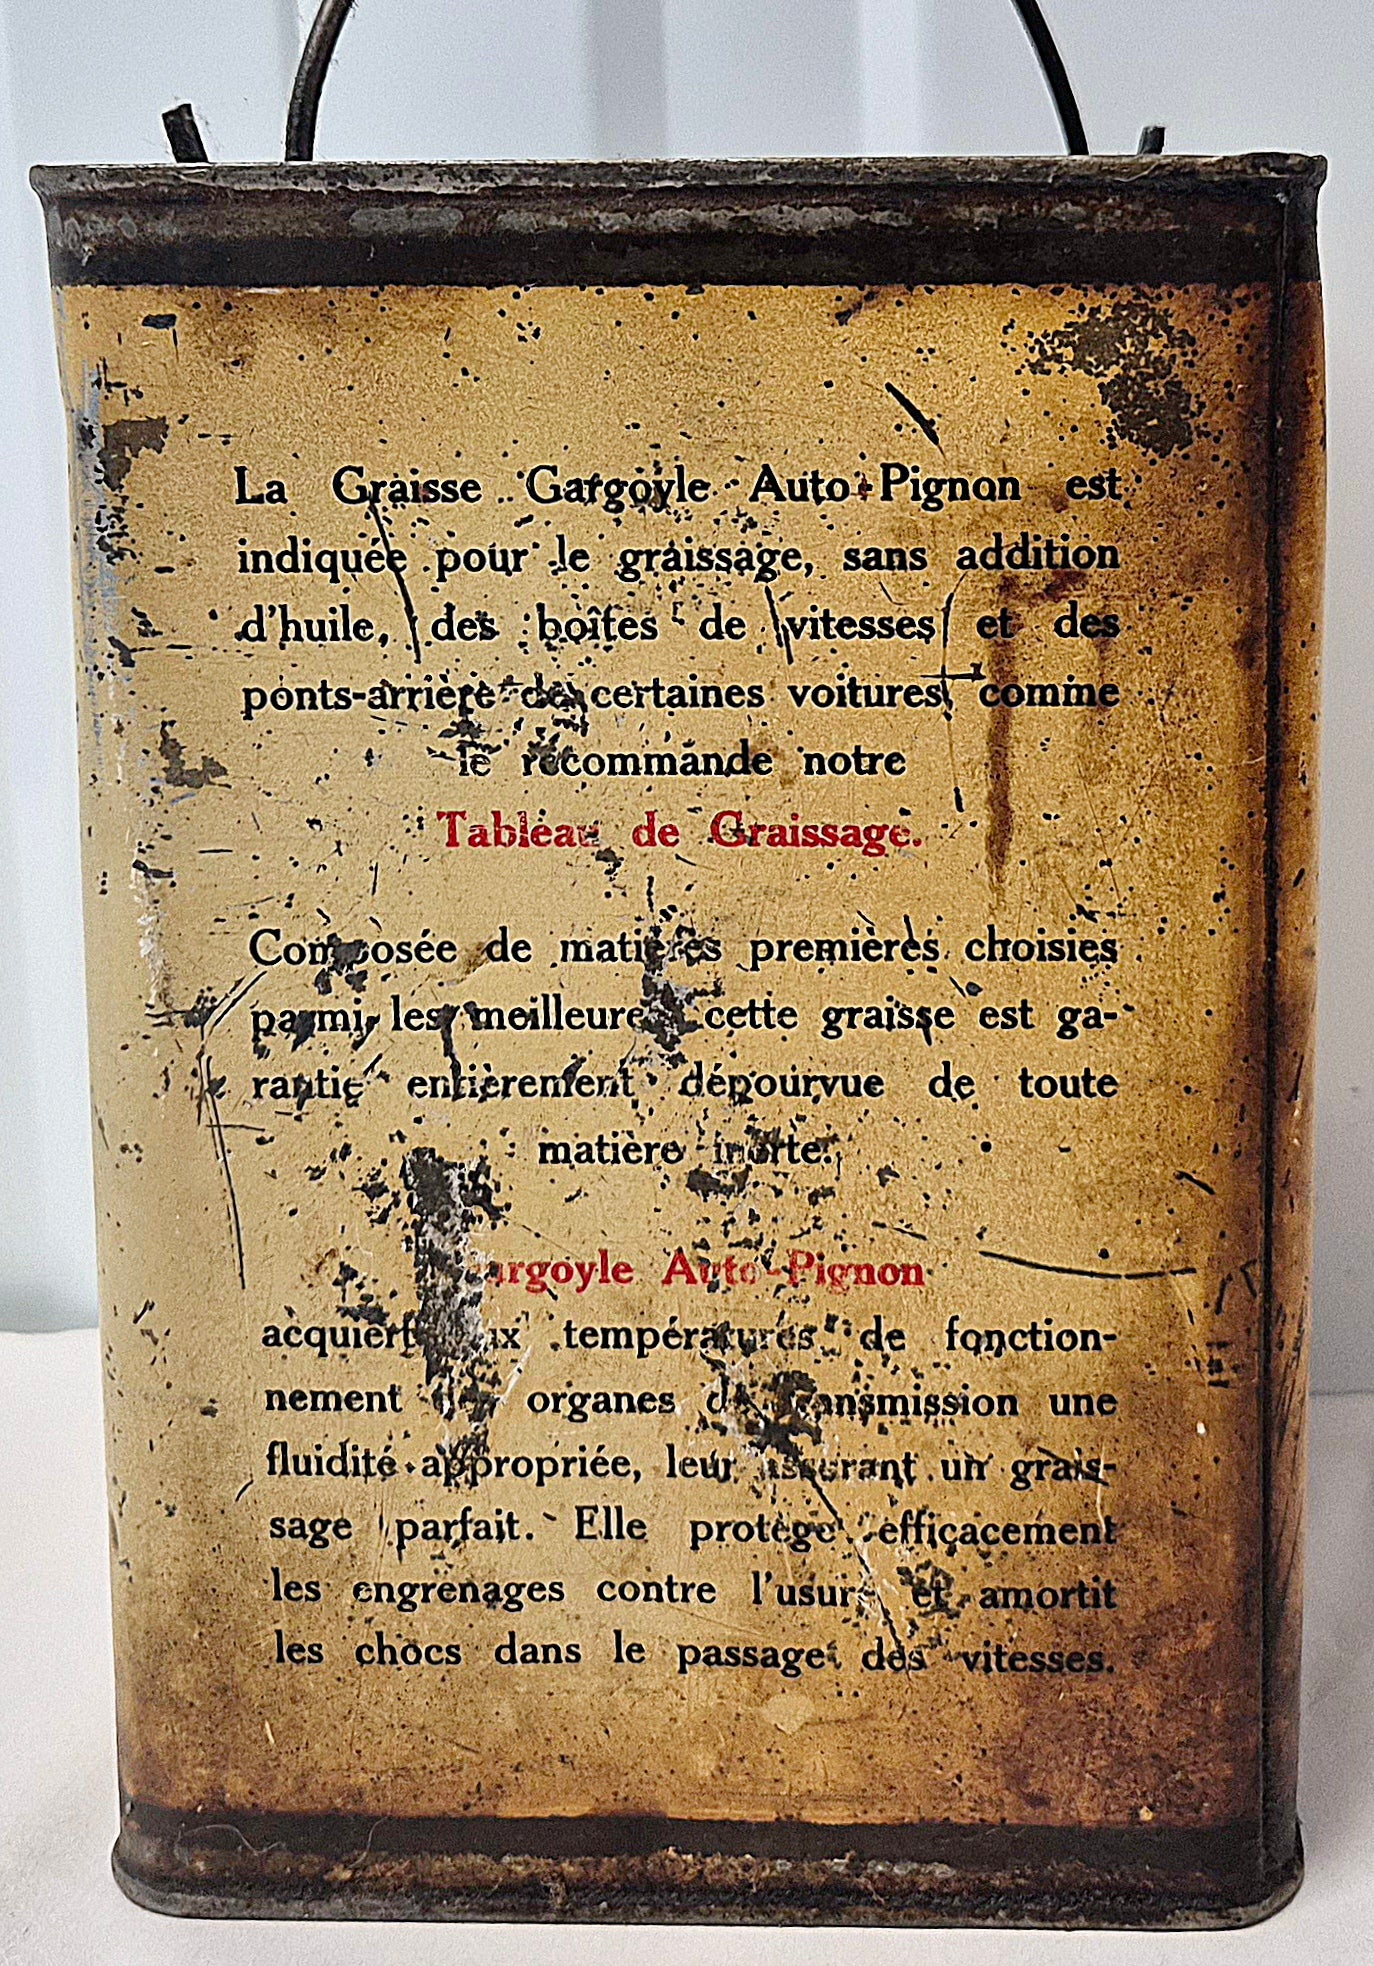 La Graisse Gargoyle Auto-Pignon est
indiquée pour le graissage, sans addition
d'huile, des boîtes de vitesses et des
ponts-arrière de certaines voitures, comme
le recommande notre
Tableau de Graissage.
Composée de matières premières choisies
parmi les meilleures cette graisse est ga-
rantie entièrement dépourvue de toute
matière inerte.
Gargoyle Auto-Pignon
acquiert aux températures de fonction-
nement des organes de transmission une
fluidité appropriée, leur assurant un grais-
sage parfait. Elle protège efficacement
les engrenages contre l'usure et amortit
les chocs dans le passage des vitesses.